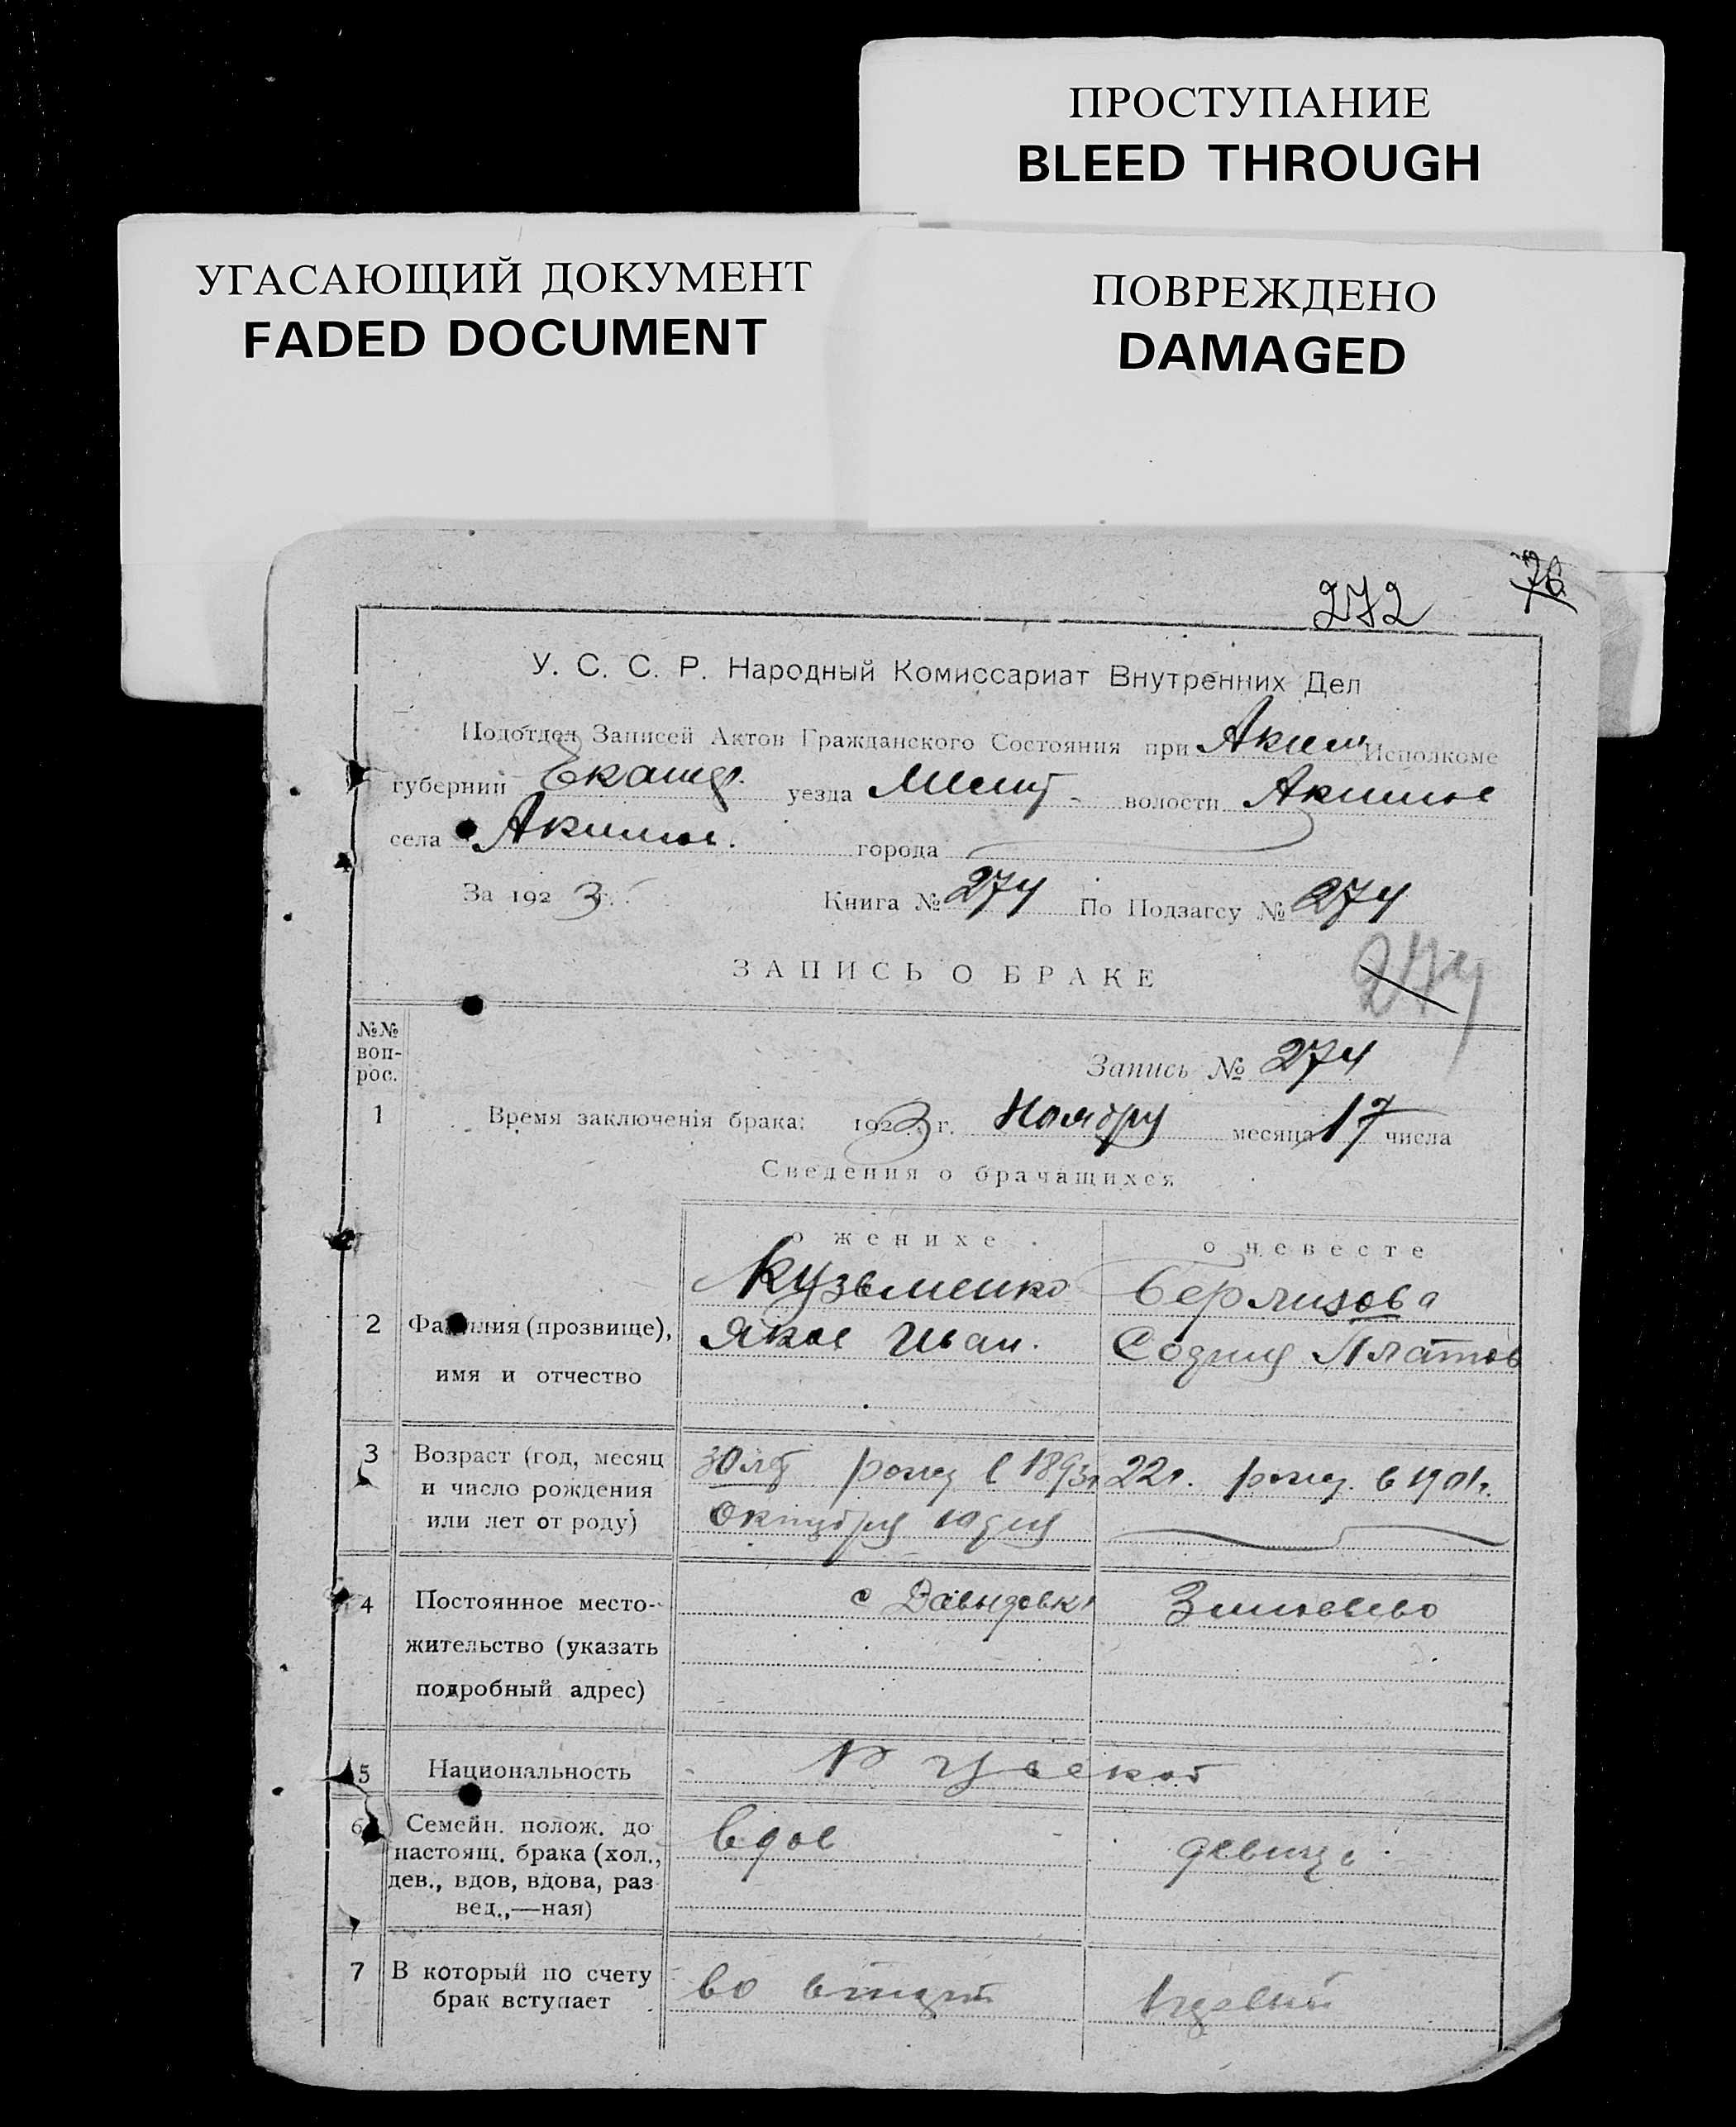 ПРОСТУПАНИЕ
BLEED THROUGH
УГАСАЮЩИЙ ДОКУМЕНТ
FADED DOCUMENT
ПОВРЕЖДЕНО
DAMAGED
76
272
У. С. С. Р. Народный Комиссариат Внутренних Дел
Подотдел Записей Актов Гражданского Состояния при Аким Исполкоме
губернии Екатер. уезда Мелит. волости Акимов
села Акимов. города
За 1923 г. Книга № 274 По Подзагсу № 274
ЗАПИСЬ О БРАКЕ
274
№№ воп-рос.
Запись № 274
1 Время заключенія брака: 1923 г. Ноября месяца 17 числа
Сведения о брачащихся
о женихе о невесте
Кузьменко Берлизова
2 Фамилия (прозвище), Яков Иван. София Платов
имя и отчество
3 Возраст (год, месяц 30 лет рожд в 1893г 22г. рожд. в 1901г.
и число рождения Октября 10 дня
или лет от роду)
4 Постоянное место- с Давыдовк
жительство (указать
подробный адрес)
5 Национальность Руской
6 Семейн. полож. до вдов девица
настоящ. брака (хол.,
дев., вдов, вдова, раз
вед.,—ная)
7 В который по счету во второй первый
брак вступает